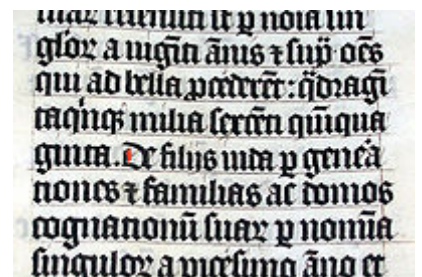 suaꝝ recensiti sūt ꝑ noīa sin
guloꝝ a uigīti ānis ⁊ sup̄ oēs
qui ad bella ꝓcederēt: q̄dragī
taqinq; milia sexcēti quīqua
ginta. De filijs iuda ꝑ gene᷑a
tiones ⁊ familias ac domos
cognationū suaꝝ ꝑ nomīa
singuloꝝ a uicesimo āno et